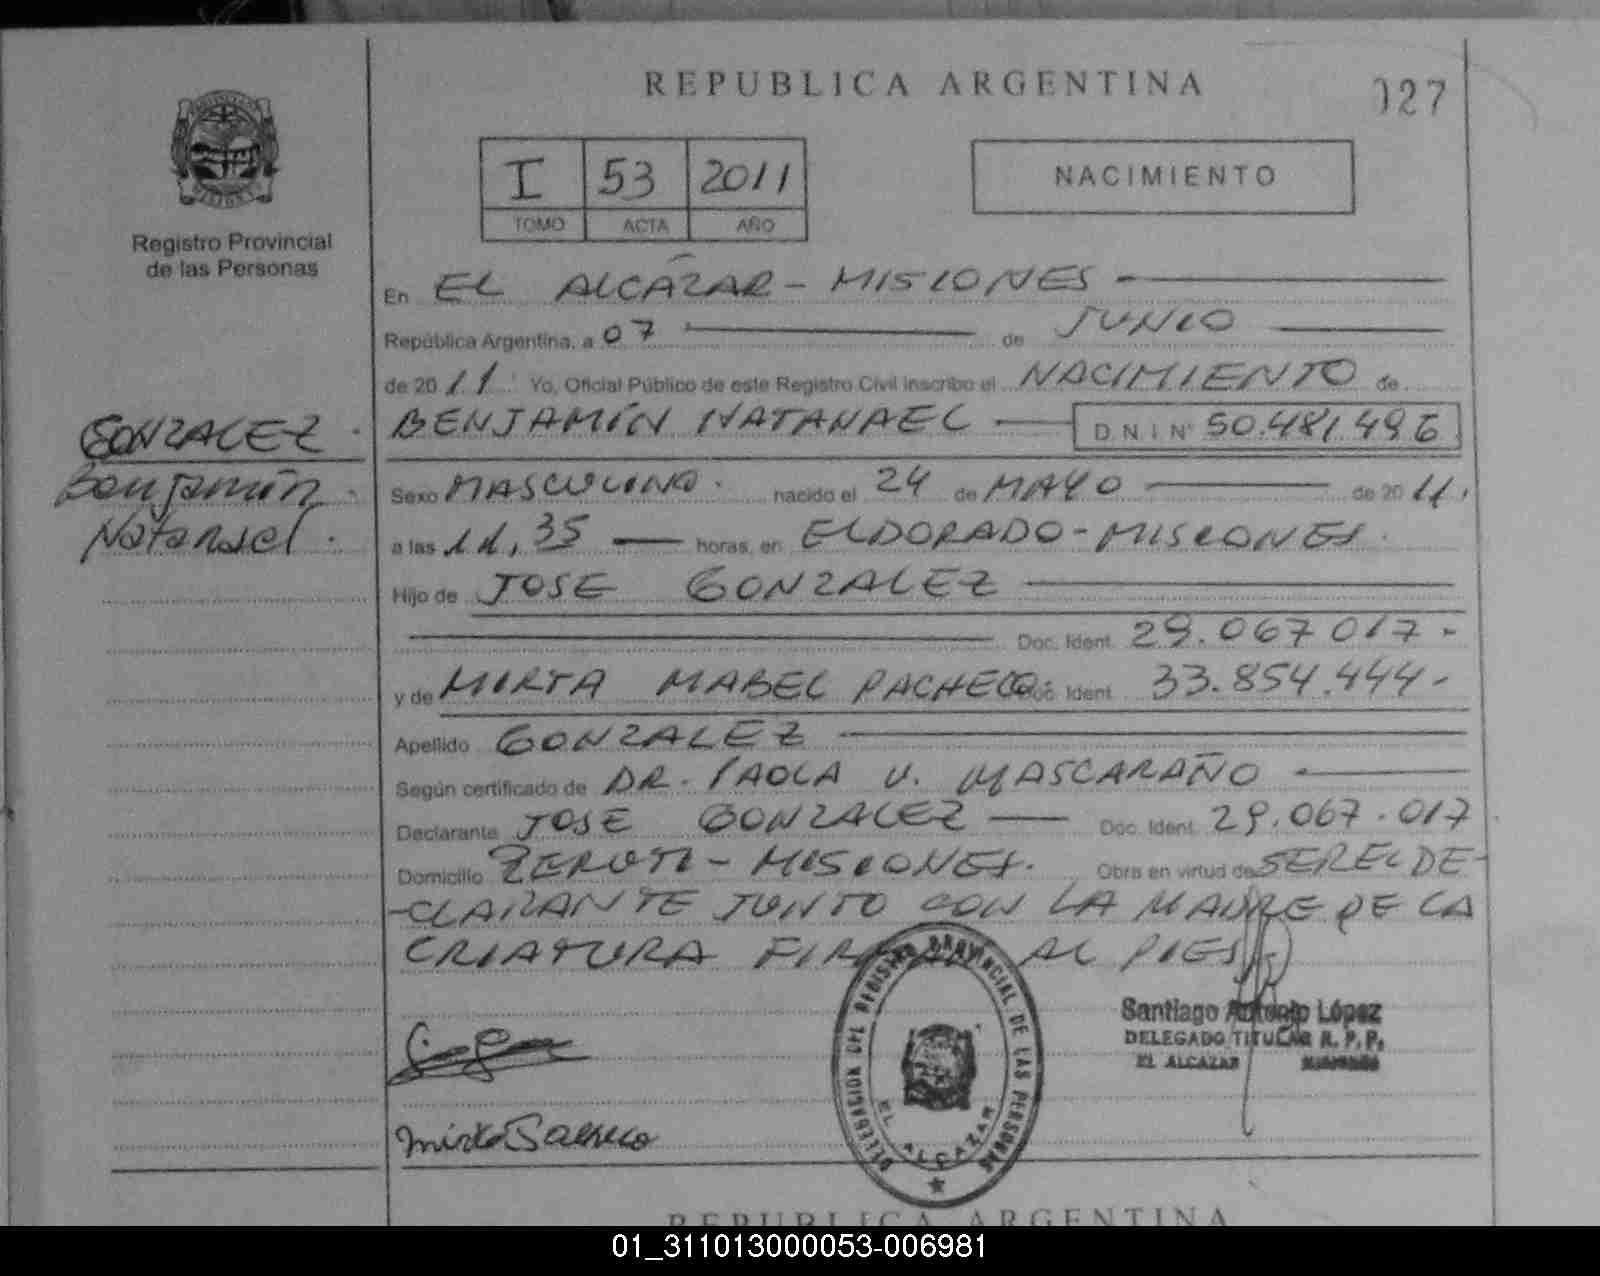 REPUBLICA ARGENTINA
027
I 53 2011
TOMO ACTA AÑO
NACIMIENTO
Registro Provincial
de las Personas
En EL ALCÁZAR - MISIONES
República Argentina, a 07 de JUNIO
de 2011 Yo, Oficial Público de este Registro Civil inscribo el NACIMIENTO de
GONZALEZ.
Benjamín
Natanael.
BENJAMÍN NATANAEL D.N.I Nº 50.481.496
Sexo MASCULINO. nacido el 24 de MAYO de 2011,
a las 11,35 horas, en ELDORADO - MISIONES.
Hijo de JOSE GONZALEZ
Doc. Ident. 29.067017-
y de MIRTA MABEL PACHECO. Doc. Ident. 33.854.444-
Apellido GONZALEZ
Según certificado de DR. PAOLA V. MASCARAÑO
Declarante JOSE GONZALEZ Doc. Ident. 29.067.017
Domicilio - MISIONES. Obra en virtud de SER EL DE-
-CLARANTE JUNTO CON LA MADRE DE LA
CRIATURA AL PIES
DELEGACION DEL REGISTRO PROVINCIAL DE LAS PERSONAS
EL ALCAZAR
Santiago Antonio López
DELEGADO TITULAR R. P. P.
EL ALCAZAR
REPUBLICA ARGENTINA
01_311013000053-006981